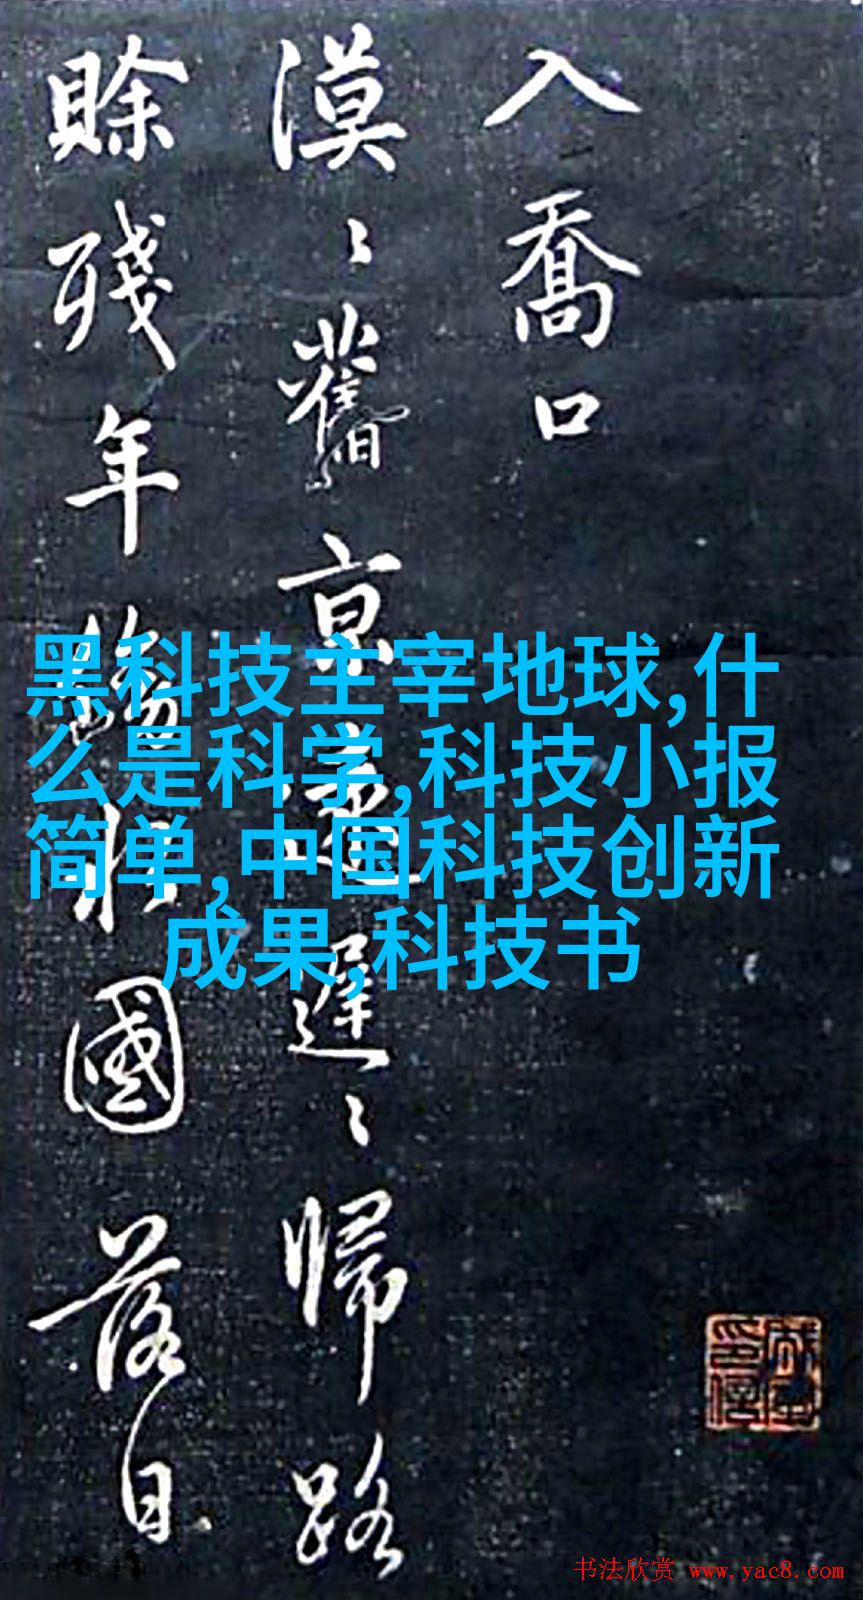 入喬口
漠〻舊京遠遲〻歸路
賒殘年傍水國落日
黑科技主宰地球,什
么是科学,科技小报
简单,中国科技创新
成果,科技书
书法欣赏 www.yac8.com